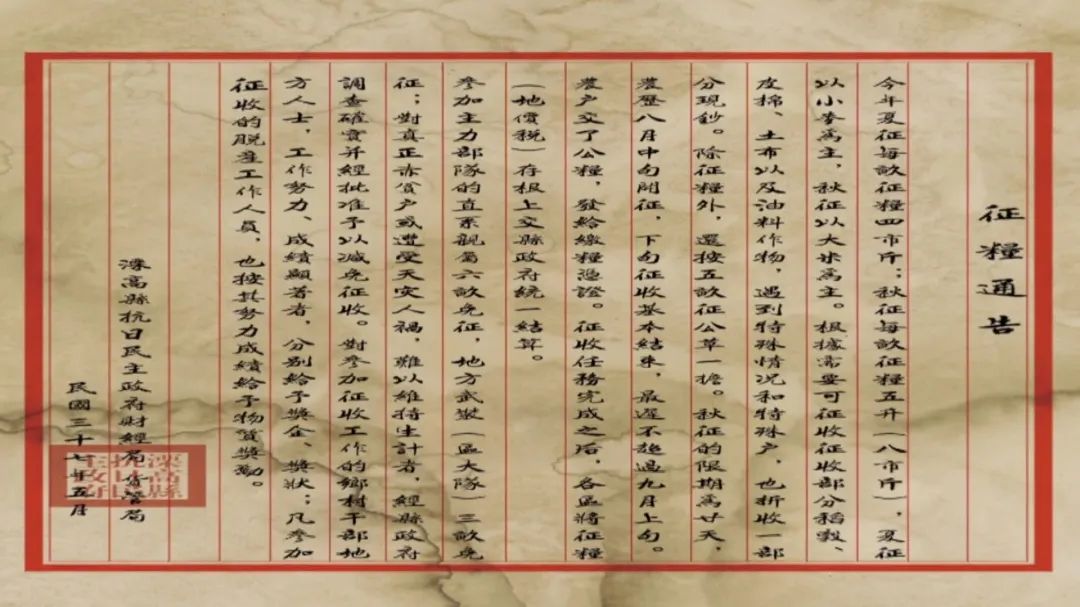 征糧通告
今年夏征每畝征糧四市斤;秋征每畝征糧五升(八市斤),夏征
以小麥為主,秋征以大米為主。根據需要可征收征收部分稻穀、
皮棉、土布以及油料作物,遇到特殊情况和特殊户,也折收一部
分現鈔。除征糧外,還按五畝征公草一擔。秋征的限期為廿天,
農歷八月中旬開征,下旬征收基本結束,最遲不超過九月上旬。
農户交了公糧,發給繳糧憑證。征收任務完成之后,各區將征糧
(地價税)存根上交縣政府統一結算。
參加主力部隊的直系親屬六畝免征,地方武裝(區大隊)三畝免
征;對真正赤貧户或遭受天灾人禍,難以維持生計者,經縣政府
調查確實并經批准予以減免征收。對參加征收工作的鄉村干部地
方人士,工作努力、成績顯著者,分别給予獎金、獎狀;凡參加
征收的脱產工作人員,也按其努力成績給予物質獎勵。
溧高縣抗日民主政府財經局貨管局
民國三十七年五月
溧高縣
抗日民
主政府